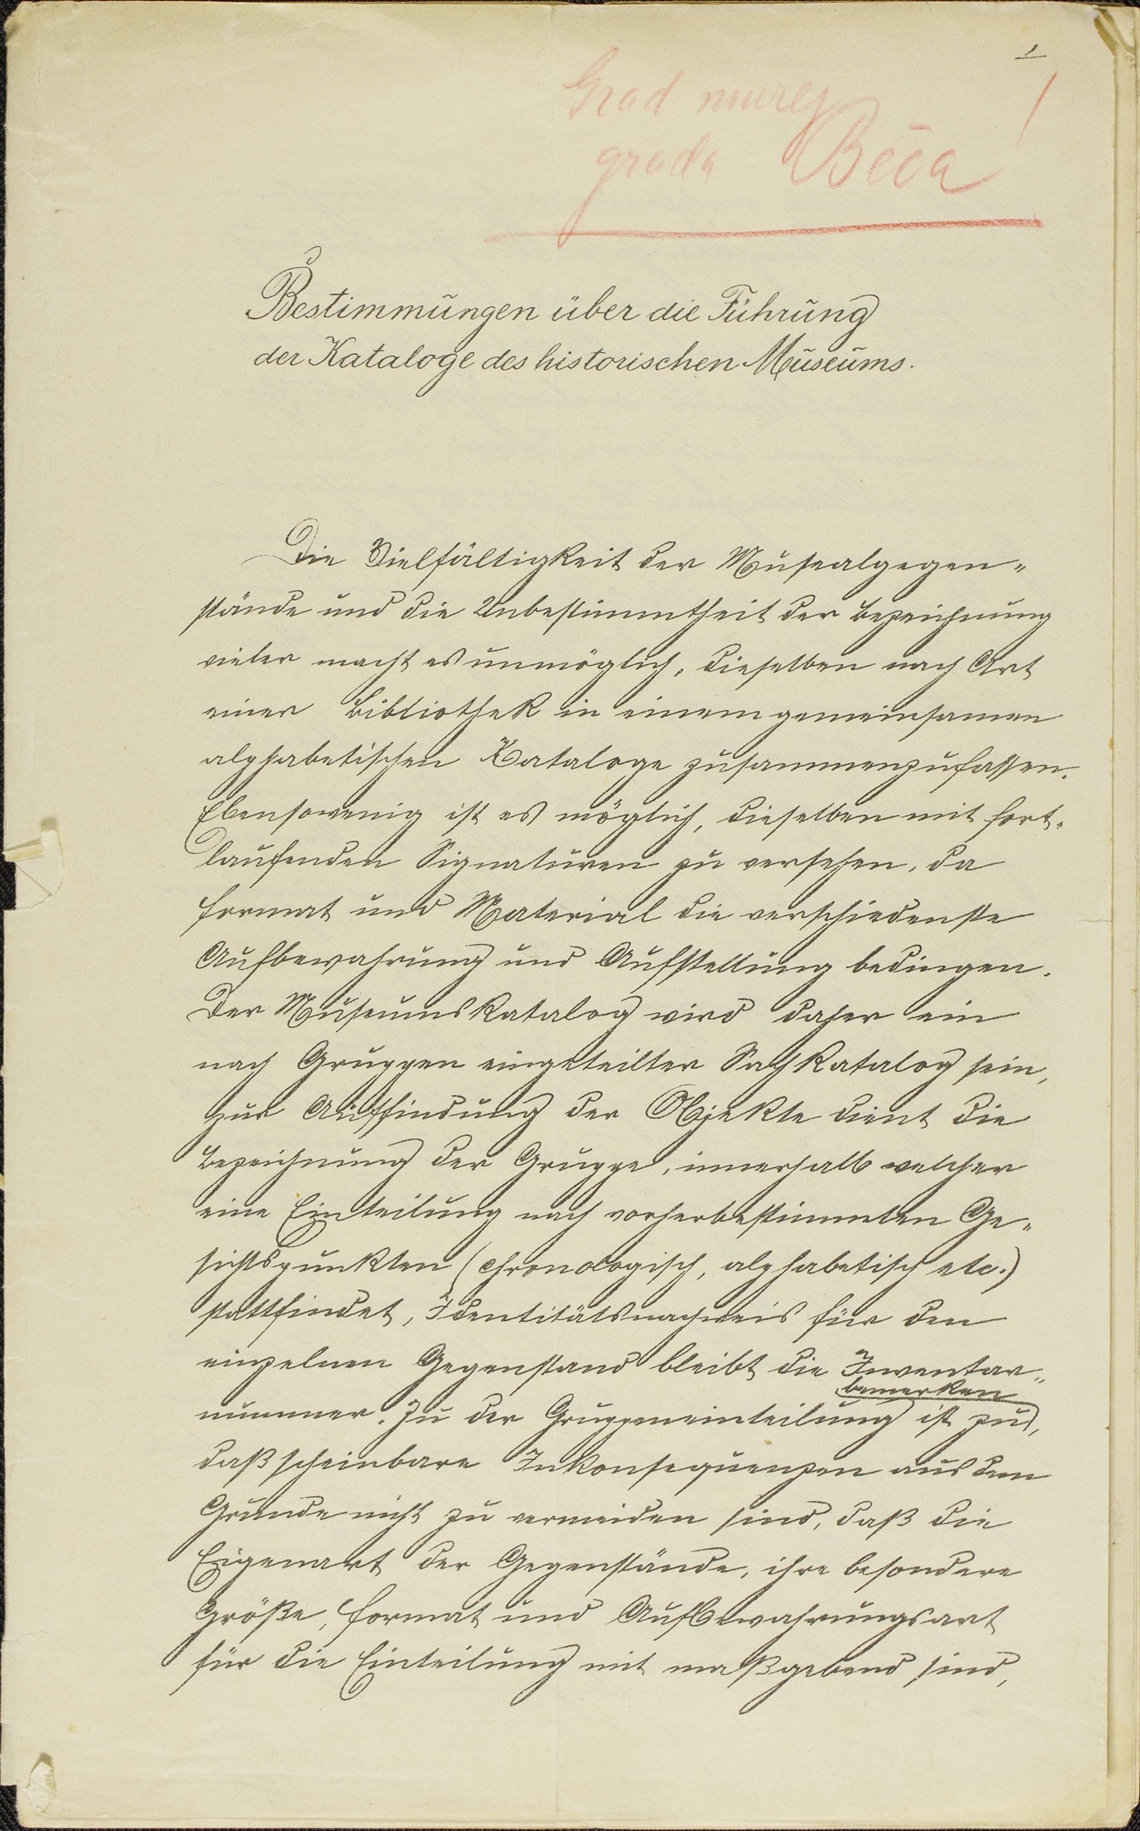 1
Grad muzej
grada Beča !
Bestimmungen über die Führung
der Kataloge des historischen Museums.
Die Vielfältigkeit der Musealgegen-
stände und die Unbestimmtheit der Bezeichnung
vieler macht es unmöglich, dieselben nach Art
einer Bibliothek in einem gemeinsamen
alphabetischen Kataloge zusammenzufassen.
Ebensowenig ist es möglich, dieselben mit fort-
laufenden Signaturen zu versehen, da
Format und Material die verschiedenste
Aufbewahrung und Aufstellung bedingen.
Der Museumskatalog wird daher ein
nach Gruppen eingeteilter Sachkatalog sein,
zur Auffindung der Objekte dient die
Bezeichnung der Gruppe, innerhalb welcher
eine Einteilung nach vorherbestimmten Ge-
sichtspunkten (chronologisch, alphabetisch etc.)
stattfindet, Identitätsnachweis für den
einzelnen Gegenstand bleibt die Inventar-
bemerken
nummer. Zu der Gruppeneinteilung ist zu,
daß scheinbare Inkonsequenzen aus dem
Grunde nicht zu vermeiden sind, daß die
Eigenart der Gegenstände, ihre besondere
Größe, Format und Aufbewahrungsart
für die Einteilung mit maßgebend sind,